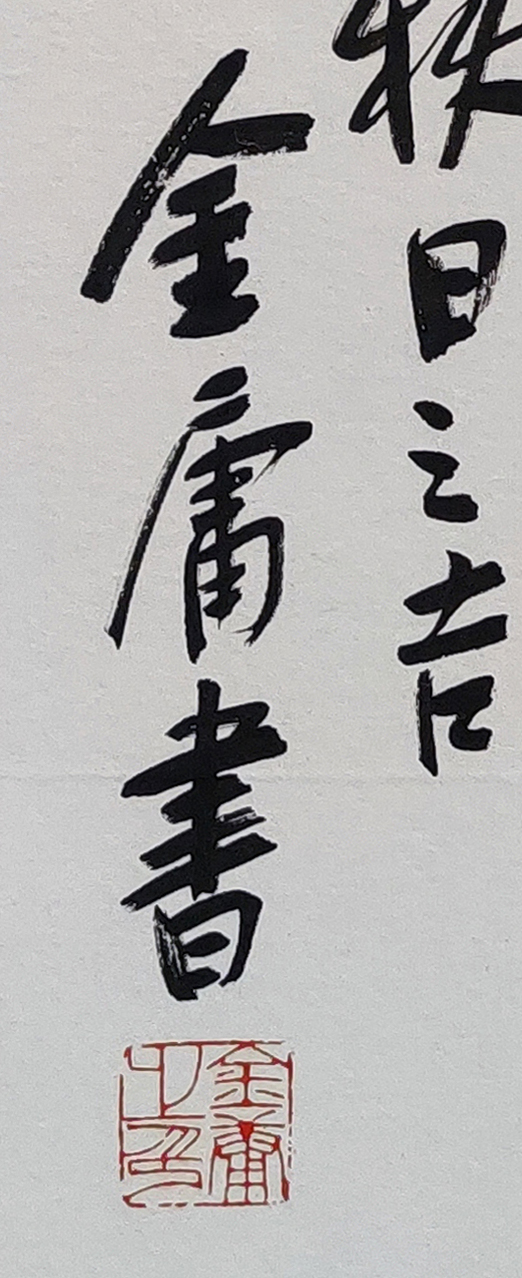 秋日之吉
金庸書
金庸之印